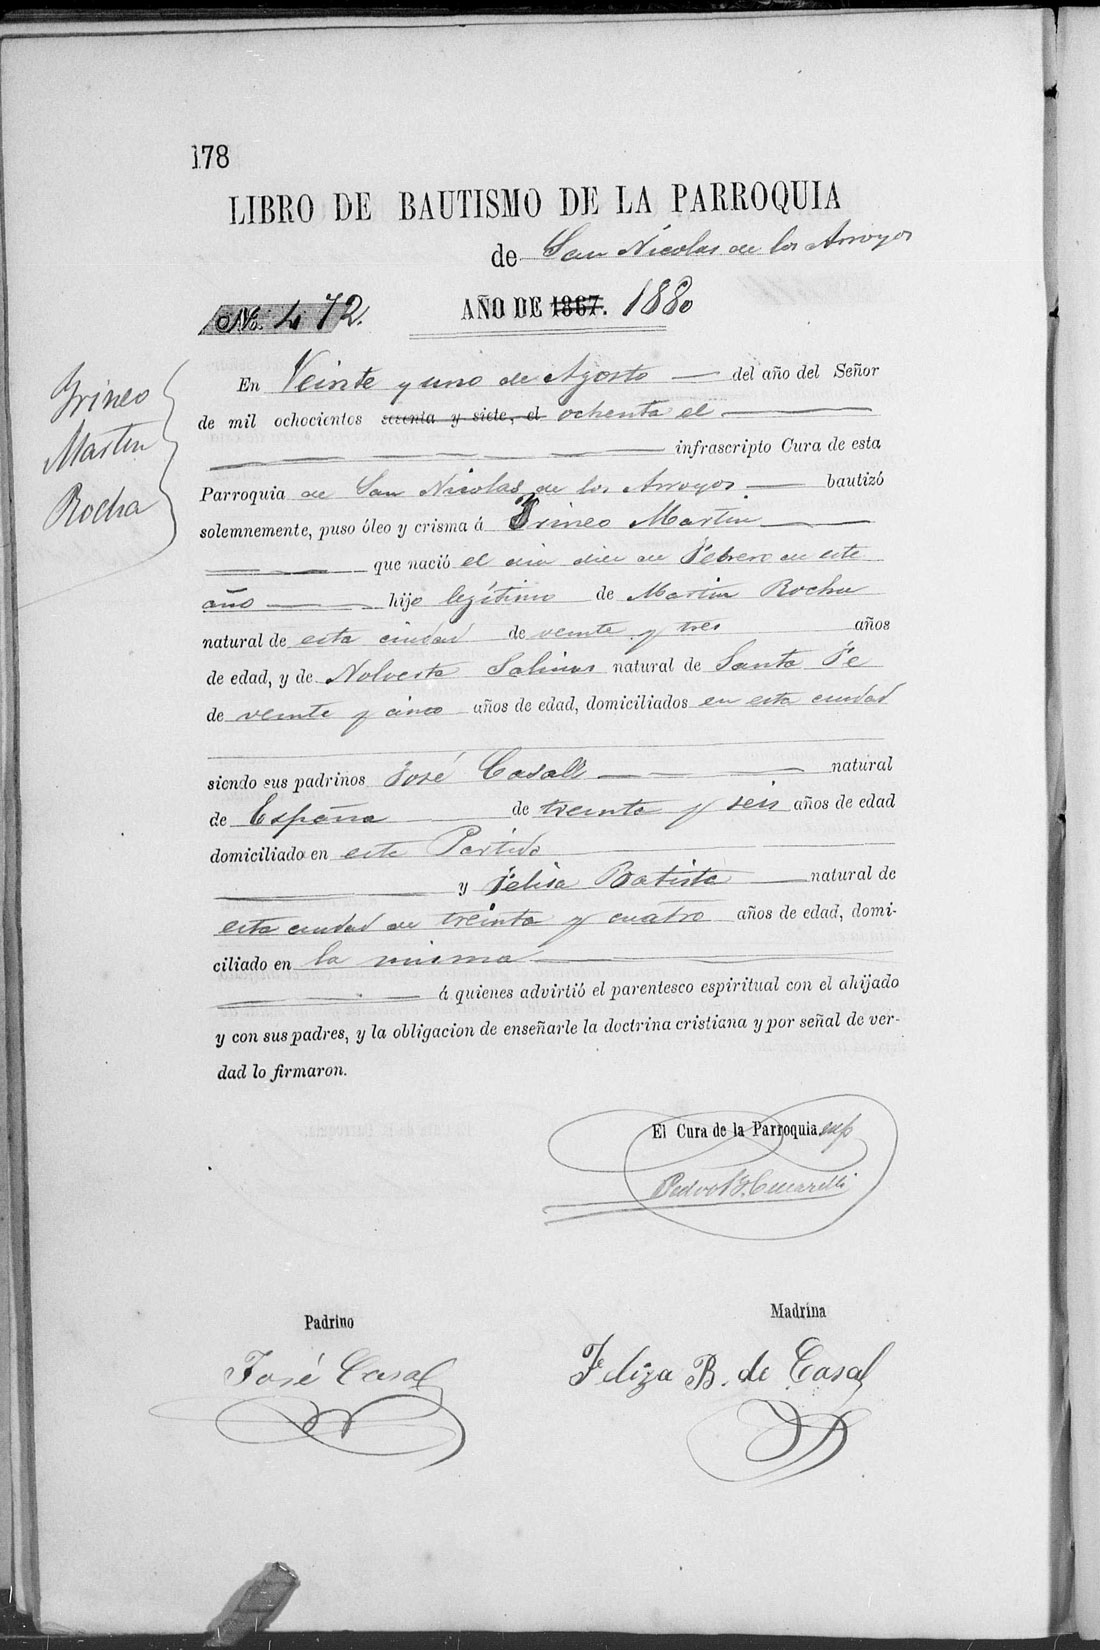 178
LIBRO DE BAUTISMO DE LA PARROQUIA
de San Nicolas de los Arroyos
No. 472. AÑO DE 1867. 1880
Irineo
Martin
Rocha
En Veinte y uno de Agosto del año del Señor
de mil ochocientos sesenta y siete, el ochenta el
infrascripto Cura de esta
Parroquia de San Nicolas de los Arroyos bautizó
solemnemente, puso óleo y crisma á Irineo Martin
que nació el dia diez de Febrero de este
año hijo legítimo de Martin Rocha
natural de esta ciudad de veinte y tres años
de edad, y de Nolverta Salinas natural de Santa Fe
de veinte y cinco años de edad, domiciliados en esta ciudad
siendo sus padrinos José Casall natural
de España de treinta y seis años de edad
domiciliado en este Partido
y Felisa Batista natural de
esta ciudad de treinta y cuatro años de edad, domi-
ciliado en la misma
á quienes advirtió el parentesco espiritual con el ahijado
y con sus padres, y la obligacion de enseñarle la doctrina cristiana y por señal de ver-
dad lo firmaron.
El Cura de la Parroquia
Pedro
Padrino
Madrina
José Casal
Feliza B. de Casal